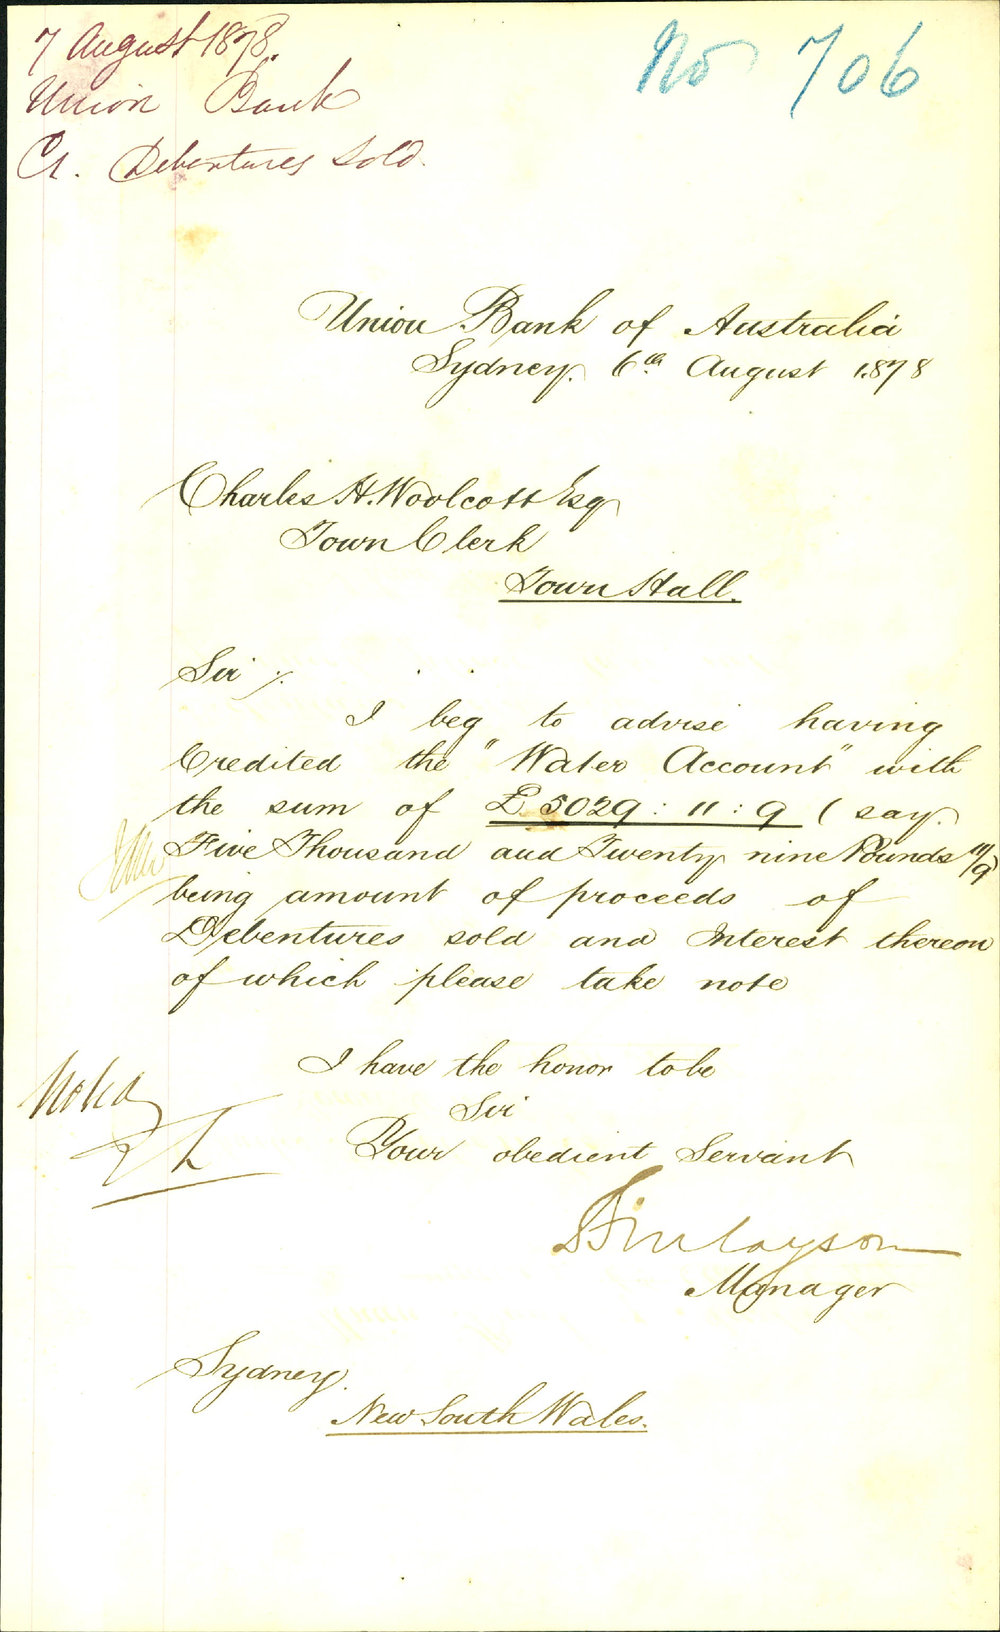 7 August 1878.
Union Bank
Cr. Debentures Sold.
No 706
Union Bank of Australia
Sydney. 6th August 1878
Charles H. Woolcott Esq
Town Clerk
Town Hall.
Sir
I beg to advise having
Credited the "Water Account" with
the sum of £5029 : 11 : 9 (say
Five Thousand and Twenty nine Pounds 11/9)
being amount of proceeds of
Debentures sold and Interest thereon
of which please take note
I have the honor to be
Sir
Your obedient Servant
Noted
Finlayson
Manager
Sydney.
New South Wales.